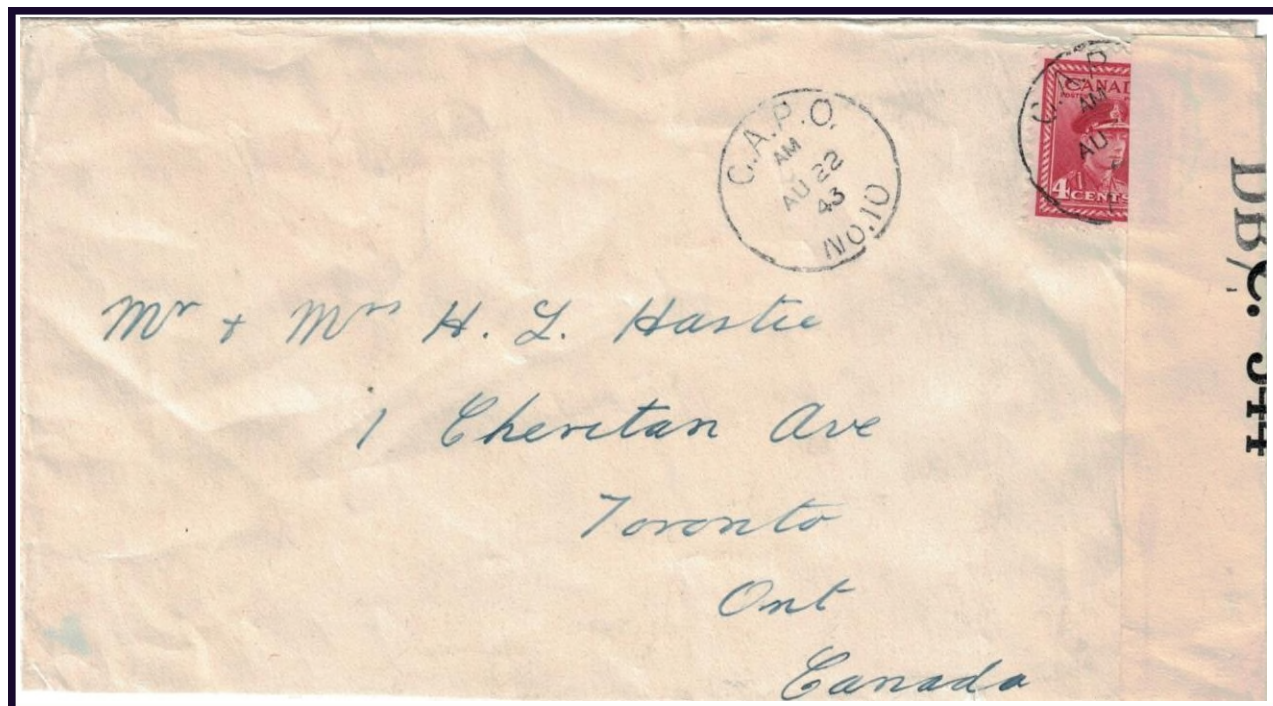 C.A.P.O.
AM
AU 22
43
NO. 10
C.A.P
AM
AU
CANAD
POSTES
4 CENTS
DB/
C. 544
Mr + Mrs H. L. Hastie
1 Cheritan Ave
Toronto
Ont
Canada